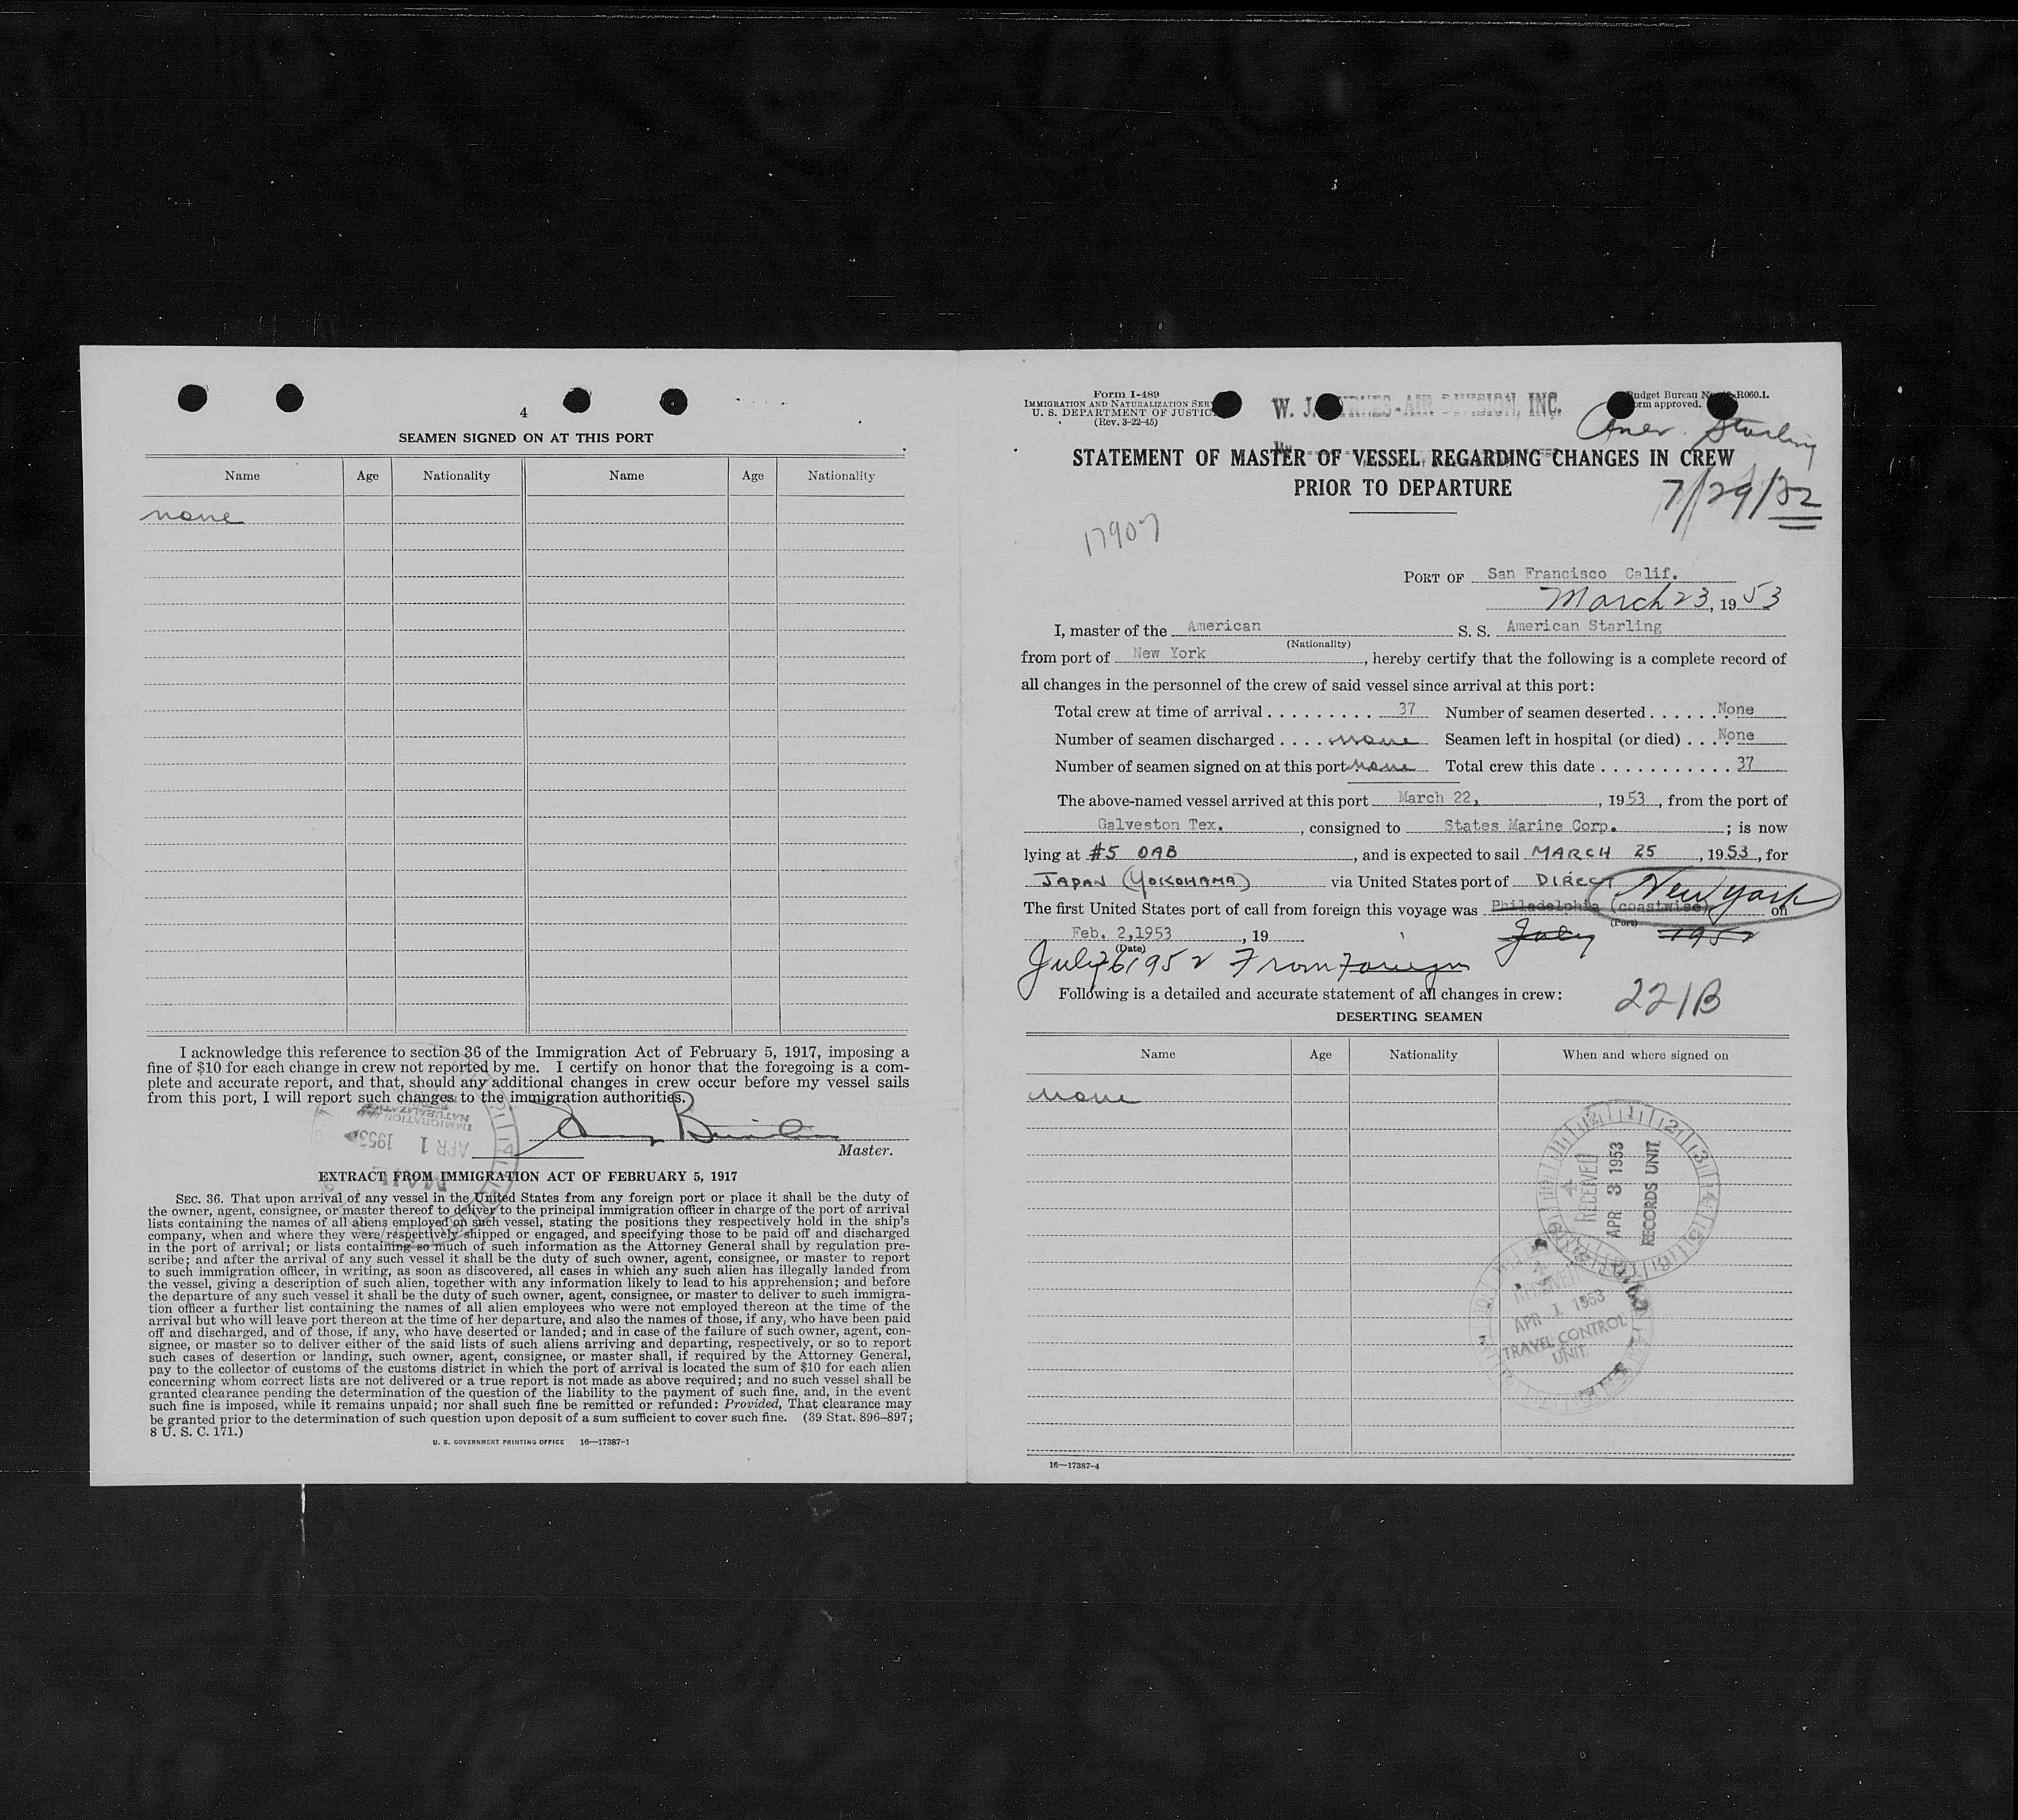 4
SEAMEN SIGNED ON AT THIS PORT
Name Age Nationality Name Age Nationality
none
I acknowledge this reference to section 36 of the Immigration Act of February 5, 1917, imposing a
fine of $10 for each change in crew not reported by me. I certify on honor that the foregoing is a com-
plete and accurate report, and that, should any additional changes in crew occur before my vessel sails
from this port, I will report such changes to the immigration authorities.
Master.
IMMIGRATION AND
NATURALIZATION
APR 1 1953
MAIL
EXTRACT FROM IMMIGRATION ACT OF FEBRUARY 5, 1917
SEC. 36. That upon arrival of any vessel in the United States from any foreign port or place it shall be the duty of
the owner, agent, consignee, or master thereof to deliver to the principal immigration officer in charge of the port of arrival
lists containing the names of all aliens employed on such vessel, stating the positions they respectively hold in the ship's
company, when and where they were respectively shipped or engaged, and specifying those to be paid off and discharged
in the port of arrival; or lists containing so much of such information as the Attorney General shall by regulation pre-
scribe; and after the arrival of any such vessel it shall be the duty of such owner, agent, consignee, or master to report
to such immigration officer, in writing, as soon as discovered, all cases in which any such alien has illegally landed from
the vessel, giving a description of such alien, together with any information likely to lead to his apprehension; and before
the departure of any such vessel it shall be the duty of such owner, agent, consignee, or master to deliver to such immigra-
tion officer a further list containing the names of all alien employees who were not employed thereon at the time of the
arrival but who will leave port thereon at the time of her departure, and also the names of those, if any, who have been paid
off and discharged, and of those, if any, who have deserted or landed; and in case of the failure of such owner, agent, con-
signee, or master so to deliver either of the said lists of such aliens arriving and departing, respectively, or so to report
such cases of desertion or landing, such owner, agent, consignee, or master shall, if required by the Attorney General,
pay to the collector of customs of the customs district in which the port of arrival is located the sum of $10 for each alien
concerning whom correct lists are not delivered or a true report is not made as above required; and no such vessel shall be
granted clearance pending the determination of the question of the liability to the payment of such fine, and, in the event
such fine is imposed, while it remains unpaid; nor shall such fine be remitted or refunded: Provided, That clearance may
be granted prior to the determination of such question upon deposit of a sum sufficient to cover such fine. (39 Stat. 896–897;
8 U. S. C. 171.)
U. S. GOVERNMENT PRINTING OFFICE 16—17387-1
Form I-489
IMMIGRATION AND NATURALIZATION SER
U. S. DEPARTMENT OF JUSTIC
(Rev. 3-22-45)
W. J. AIR DIVISION, INC.
Budget Bureau R060.1.
orm approved.
Amer. Starling
STATEMENT OF MASTER OF VESSEL REGARDING CHANGES IN CREW
PRIOR TO DEPARTURE
7/29/52
17907
PORT OF San Francisco Calif.
March 23, 1953
I, master of the American S. S. American Starling
(Nationality)
from port of New York, hereby certify that the following is a complete record of
all changes in the personnel of the crew of said vessel since arrival at this port:
Total crew at time of arrival 37 Number of seamen deserted None
Number of seamen discharged none Seamen left in hospital (or died) None
Number of seamen signed on at this port none Total crew this date 37
The above-named vessel arrived at this port March 22, 1953, from the port of
Galveston Tex., consigned to States Marine Corp.; is now
lying at #5 OAB, and is expected to sail MARCH 25, 1953, for
JAPAN (YOKOHAMA) via United States port of DIRECT
New York
The first United States port of call from foreign this voyage was Philadelphia (coastwise) on
(Port)
Feb. 2,1953, 19
(Date)
July 1952
July 26 1952 From Foreign
Following is a detailed and accurate statement of all changes in crew:
221B
DESERTING SEAMEN
Name Age Nationality When and where signed on
none
RECEIVED
APR 3 1953
RECORDS UNIT
RECEIVED
APR 1 1953
TRAVEL CONTROL
UNIT
16—17387-4